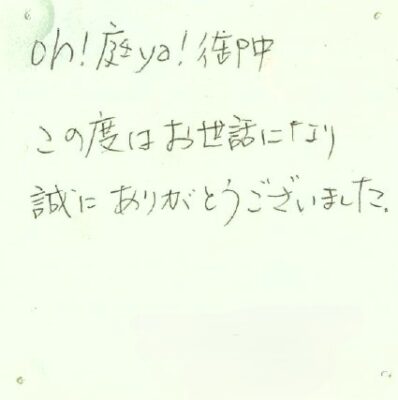 oh!庭ya!御中
この度はお世話になり
誠にありがとうございました.